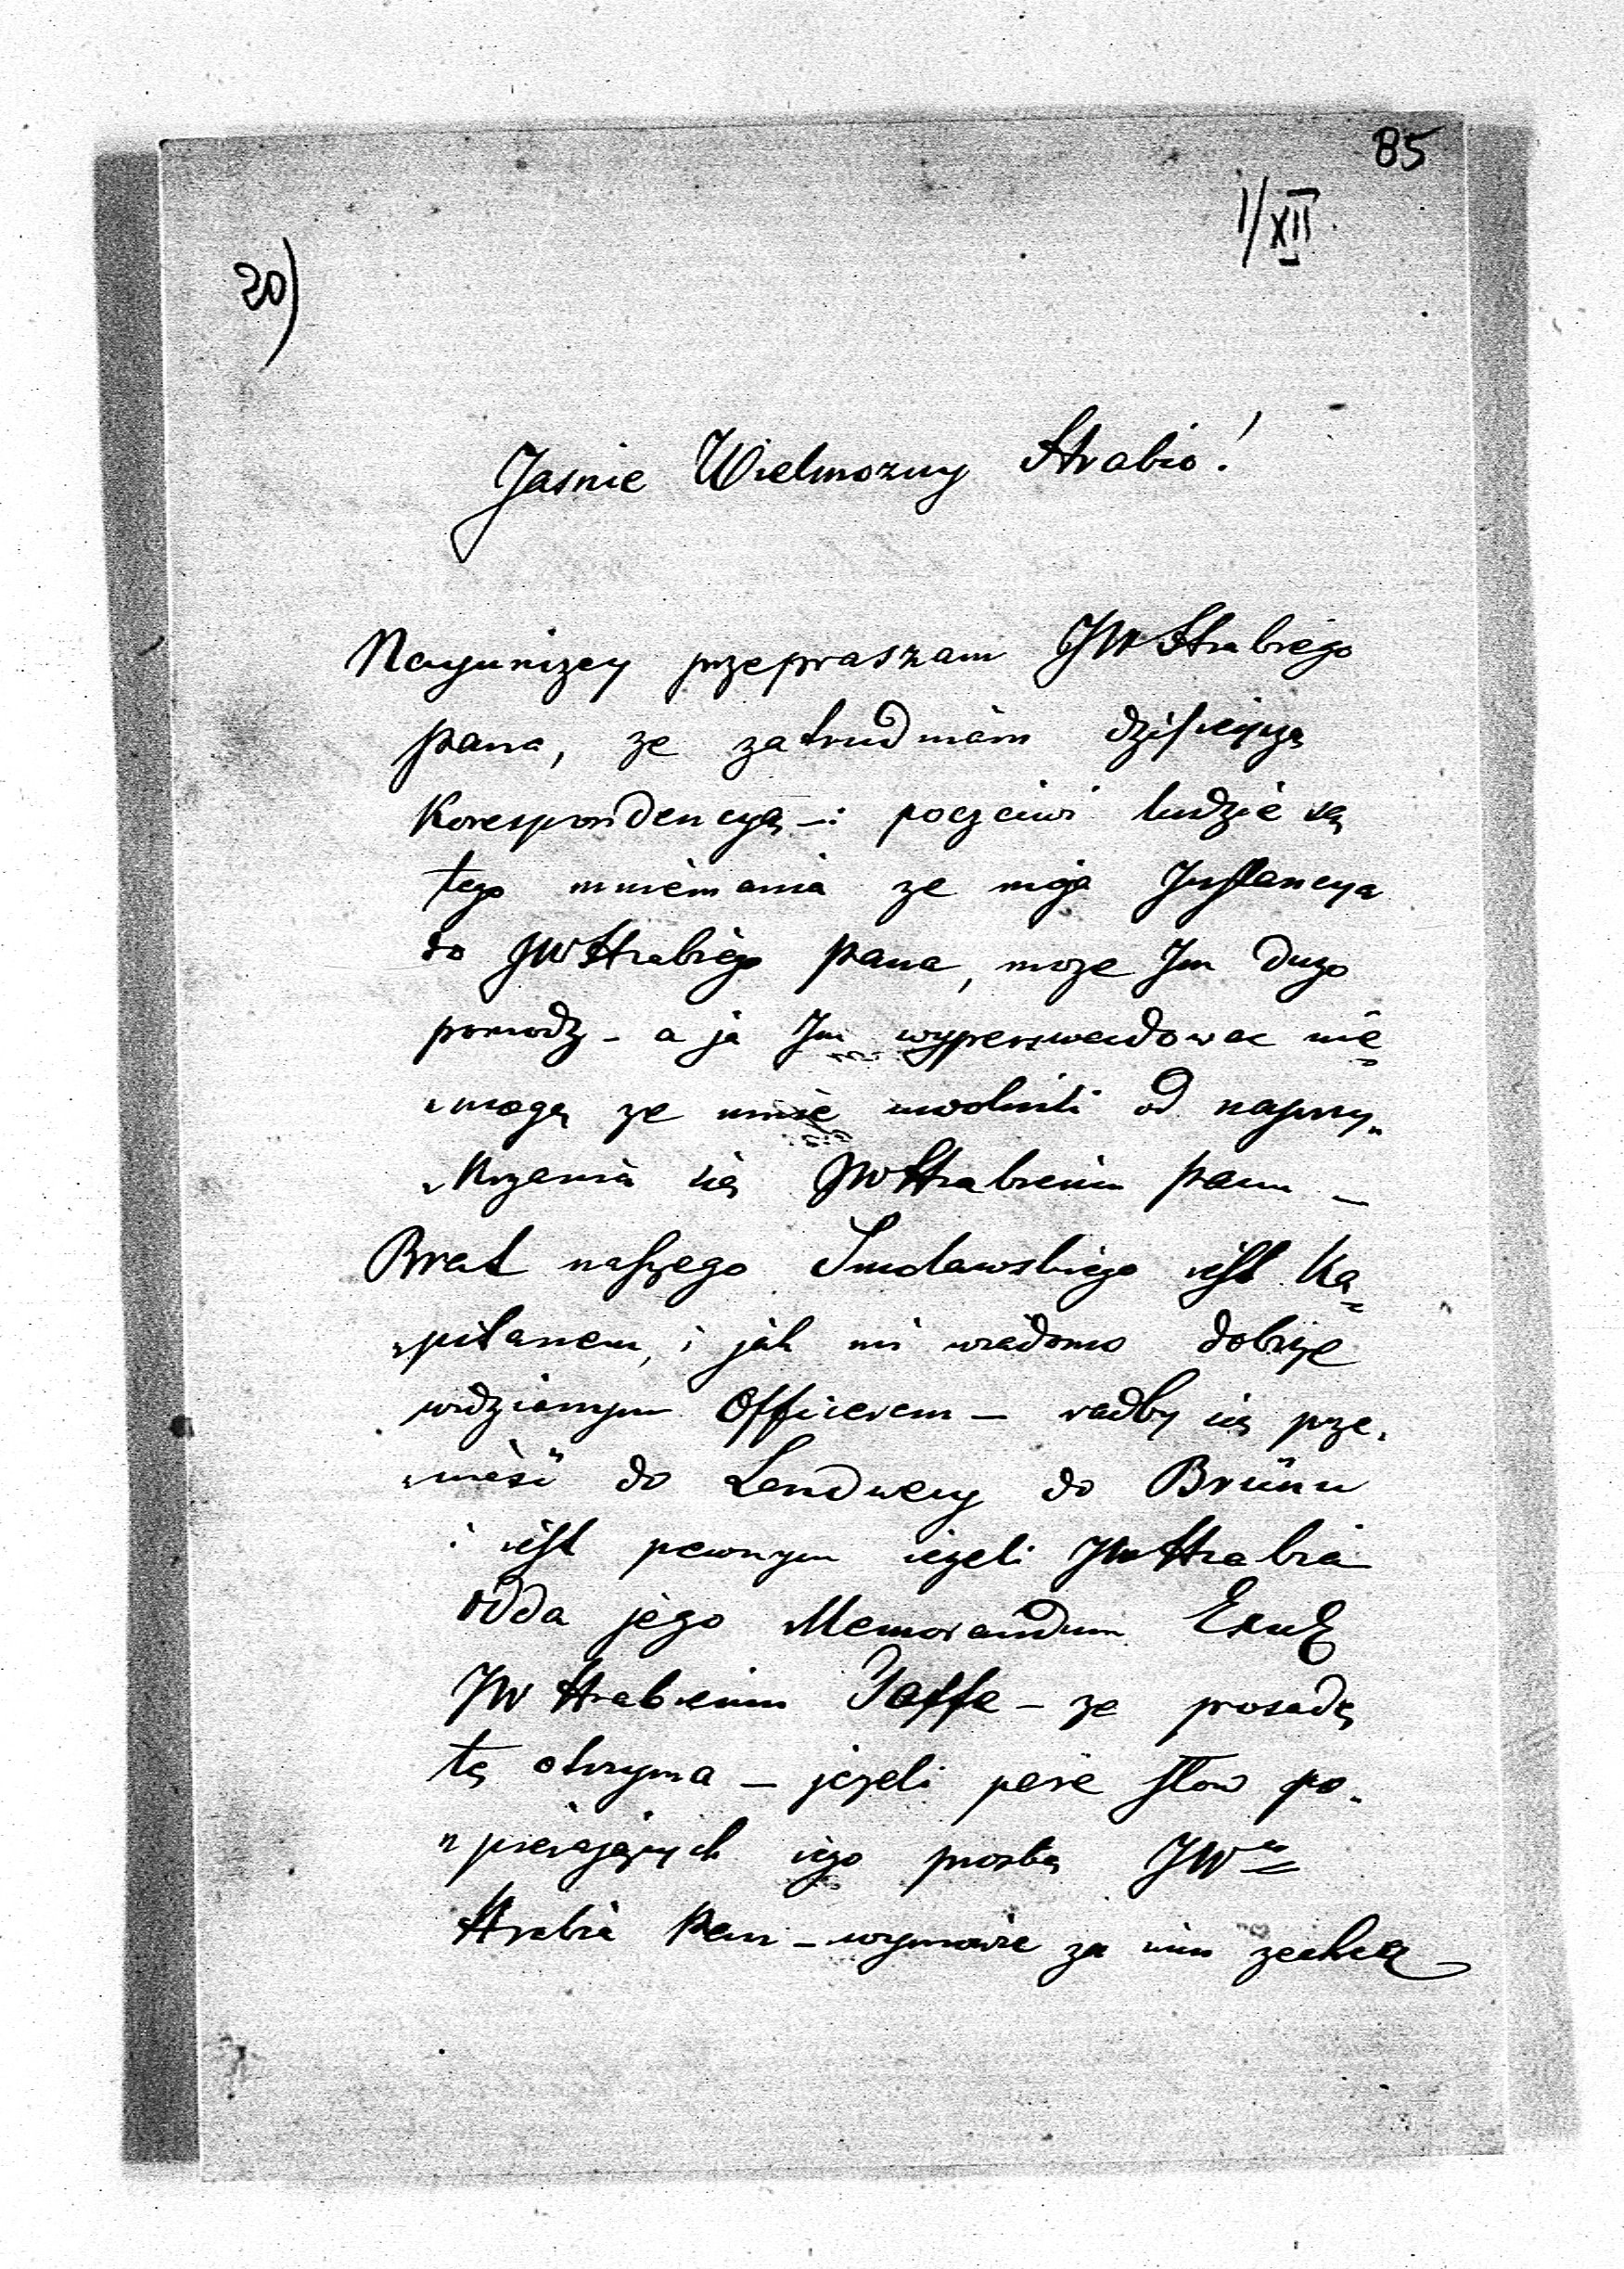 85
1/XII
20)
Jasnie Wielmozny Hrabio!
Nayunizey przepraszam JWHrabiego
pana, ze zatrudniam dzisieyszą
Korespondencyą –: poczciwi ludzie są
tego mniemania ze moja Instancya
do JWHrabiego pana, moze Im duzo
pomodz – a ja Im wyperswadowac nie
mogę ze mnie uwolnili od naprzy„
„krzania się JWHrabiemu panu –
Brat naszego Smolawskiego iest Ka„
„pitanem, i jak mi wiadomo dobrze
widzianym Officerem – radby się prze„
„nieść do Landwery do Brünn
i iest pewnym iezeli JWHrabia
odda jego Memorandum
JW Hrabiemu Taffe – ze posadę
tę otrzyma – jezeli parę słow po„
„pierających iego prosbę JWny
Hrabia Pan – wymowic za nim zechce